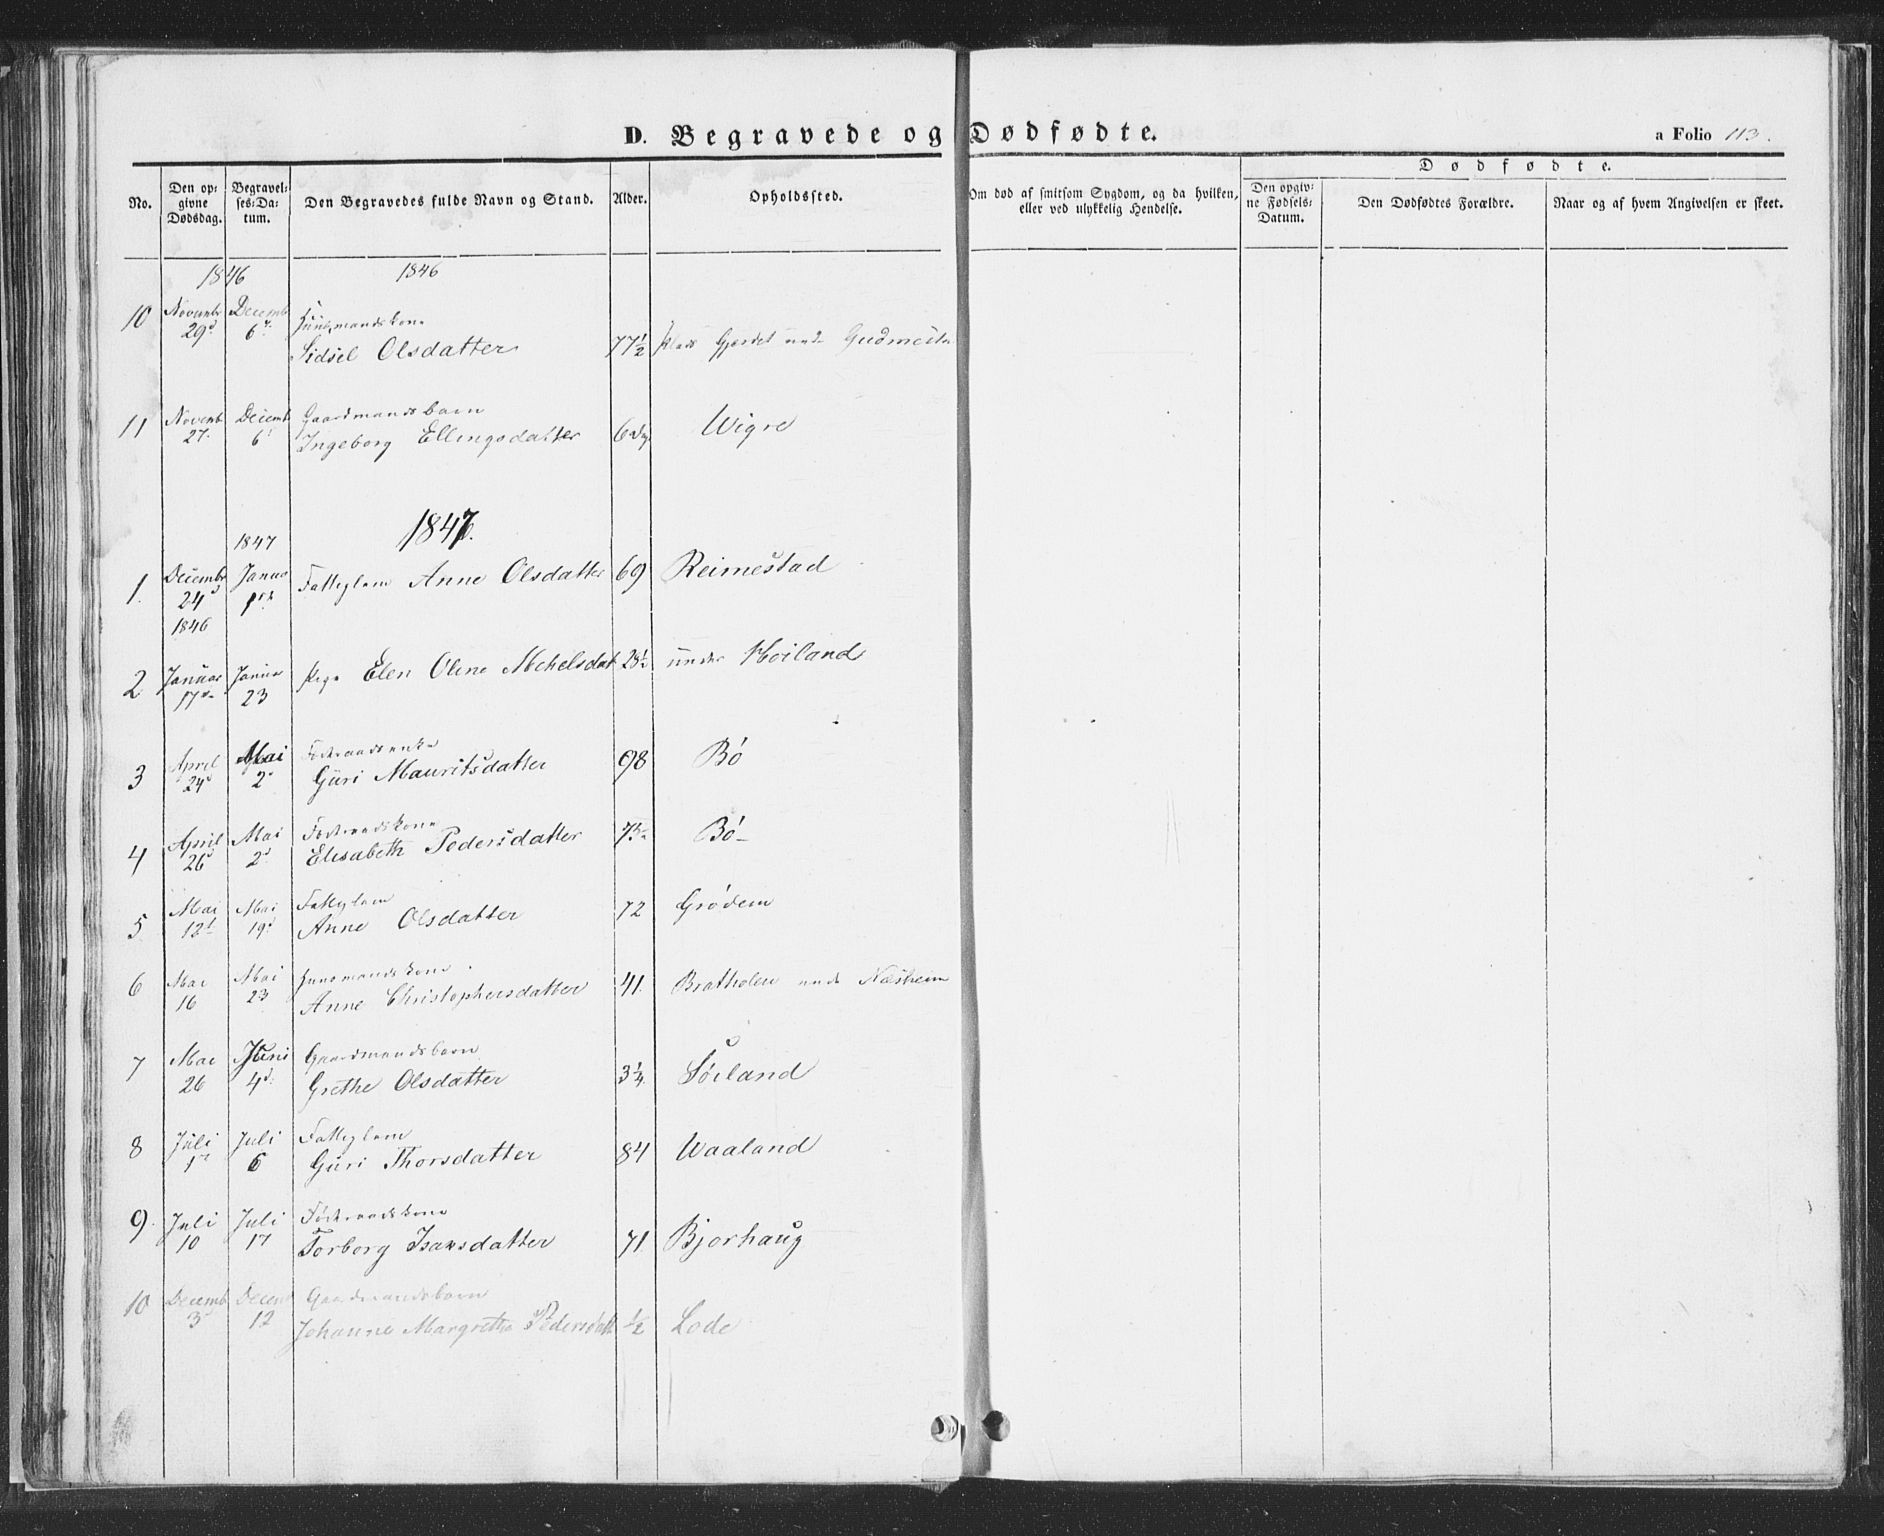 D. Begravede og Dødfødte.
a Folio 113.
No.
Den opgivne Dødsdag.
Begravelses-Datum.
Den Begravedes fulde Navn og Stand.
Alder.
Opholdssted.
Om død af smitsom Sygdom, og da hvilken, eller ved ulykkelig Hendelse.
Dødfødte.
Den opgivne Fødsels-Datum.
Den Dødfødtes Forældre.
Naar og af hvem Angivelsen er skeet.
1846 1846
10 Novembr 29d Decemb 6 Huusmandskone
Sidsel Olsdatter 77½ Plads Gjerdet
11 Novemb 27. Decemb 6 Gaardmandsbarn
Ingeborg Ellingsdatter Wigre
1847.
1847
1. Decembr 24d 1846 Janua 1 Fattiglem Anne Olsdatter 69 Reimestad
2 Januar 17 Janua 23 Pige Elen Olene Michelsdat under Høiland
3 April 24d Mai 2 Føderaadsenke
Güri Mauritsdatter 98 Bö
4 April 26d Mai 2d Føderaadskone
Elisabeth Pedersdatter 73 Bö
5 Mai 12 Mai 19 Fattiglem
Anne Olsdatter 72 Grödem
6 Mai 16 Mai 23 Huusmandskone
Anne Christophersdatter 41. Bratholen under Næsheim
7 Mai 26 Juni 4d Gaardmandsbarn
Grethe Olsdatter 3¼ Söiland
8 Juli 1 Juli 6 Fattiglem
Güri Thorsdatter 84 Waaland
9. Juli 10 Juli 17 Føderaadskone
Torborg Isaksdatter 71 Bjorhaug
10 Decemb 3 Decem 12 Gaardmandsbarn
Johanne Margrethe Pedersdatt ½ Lode